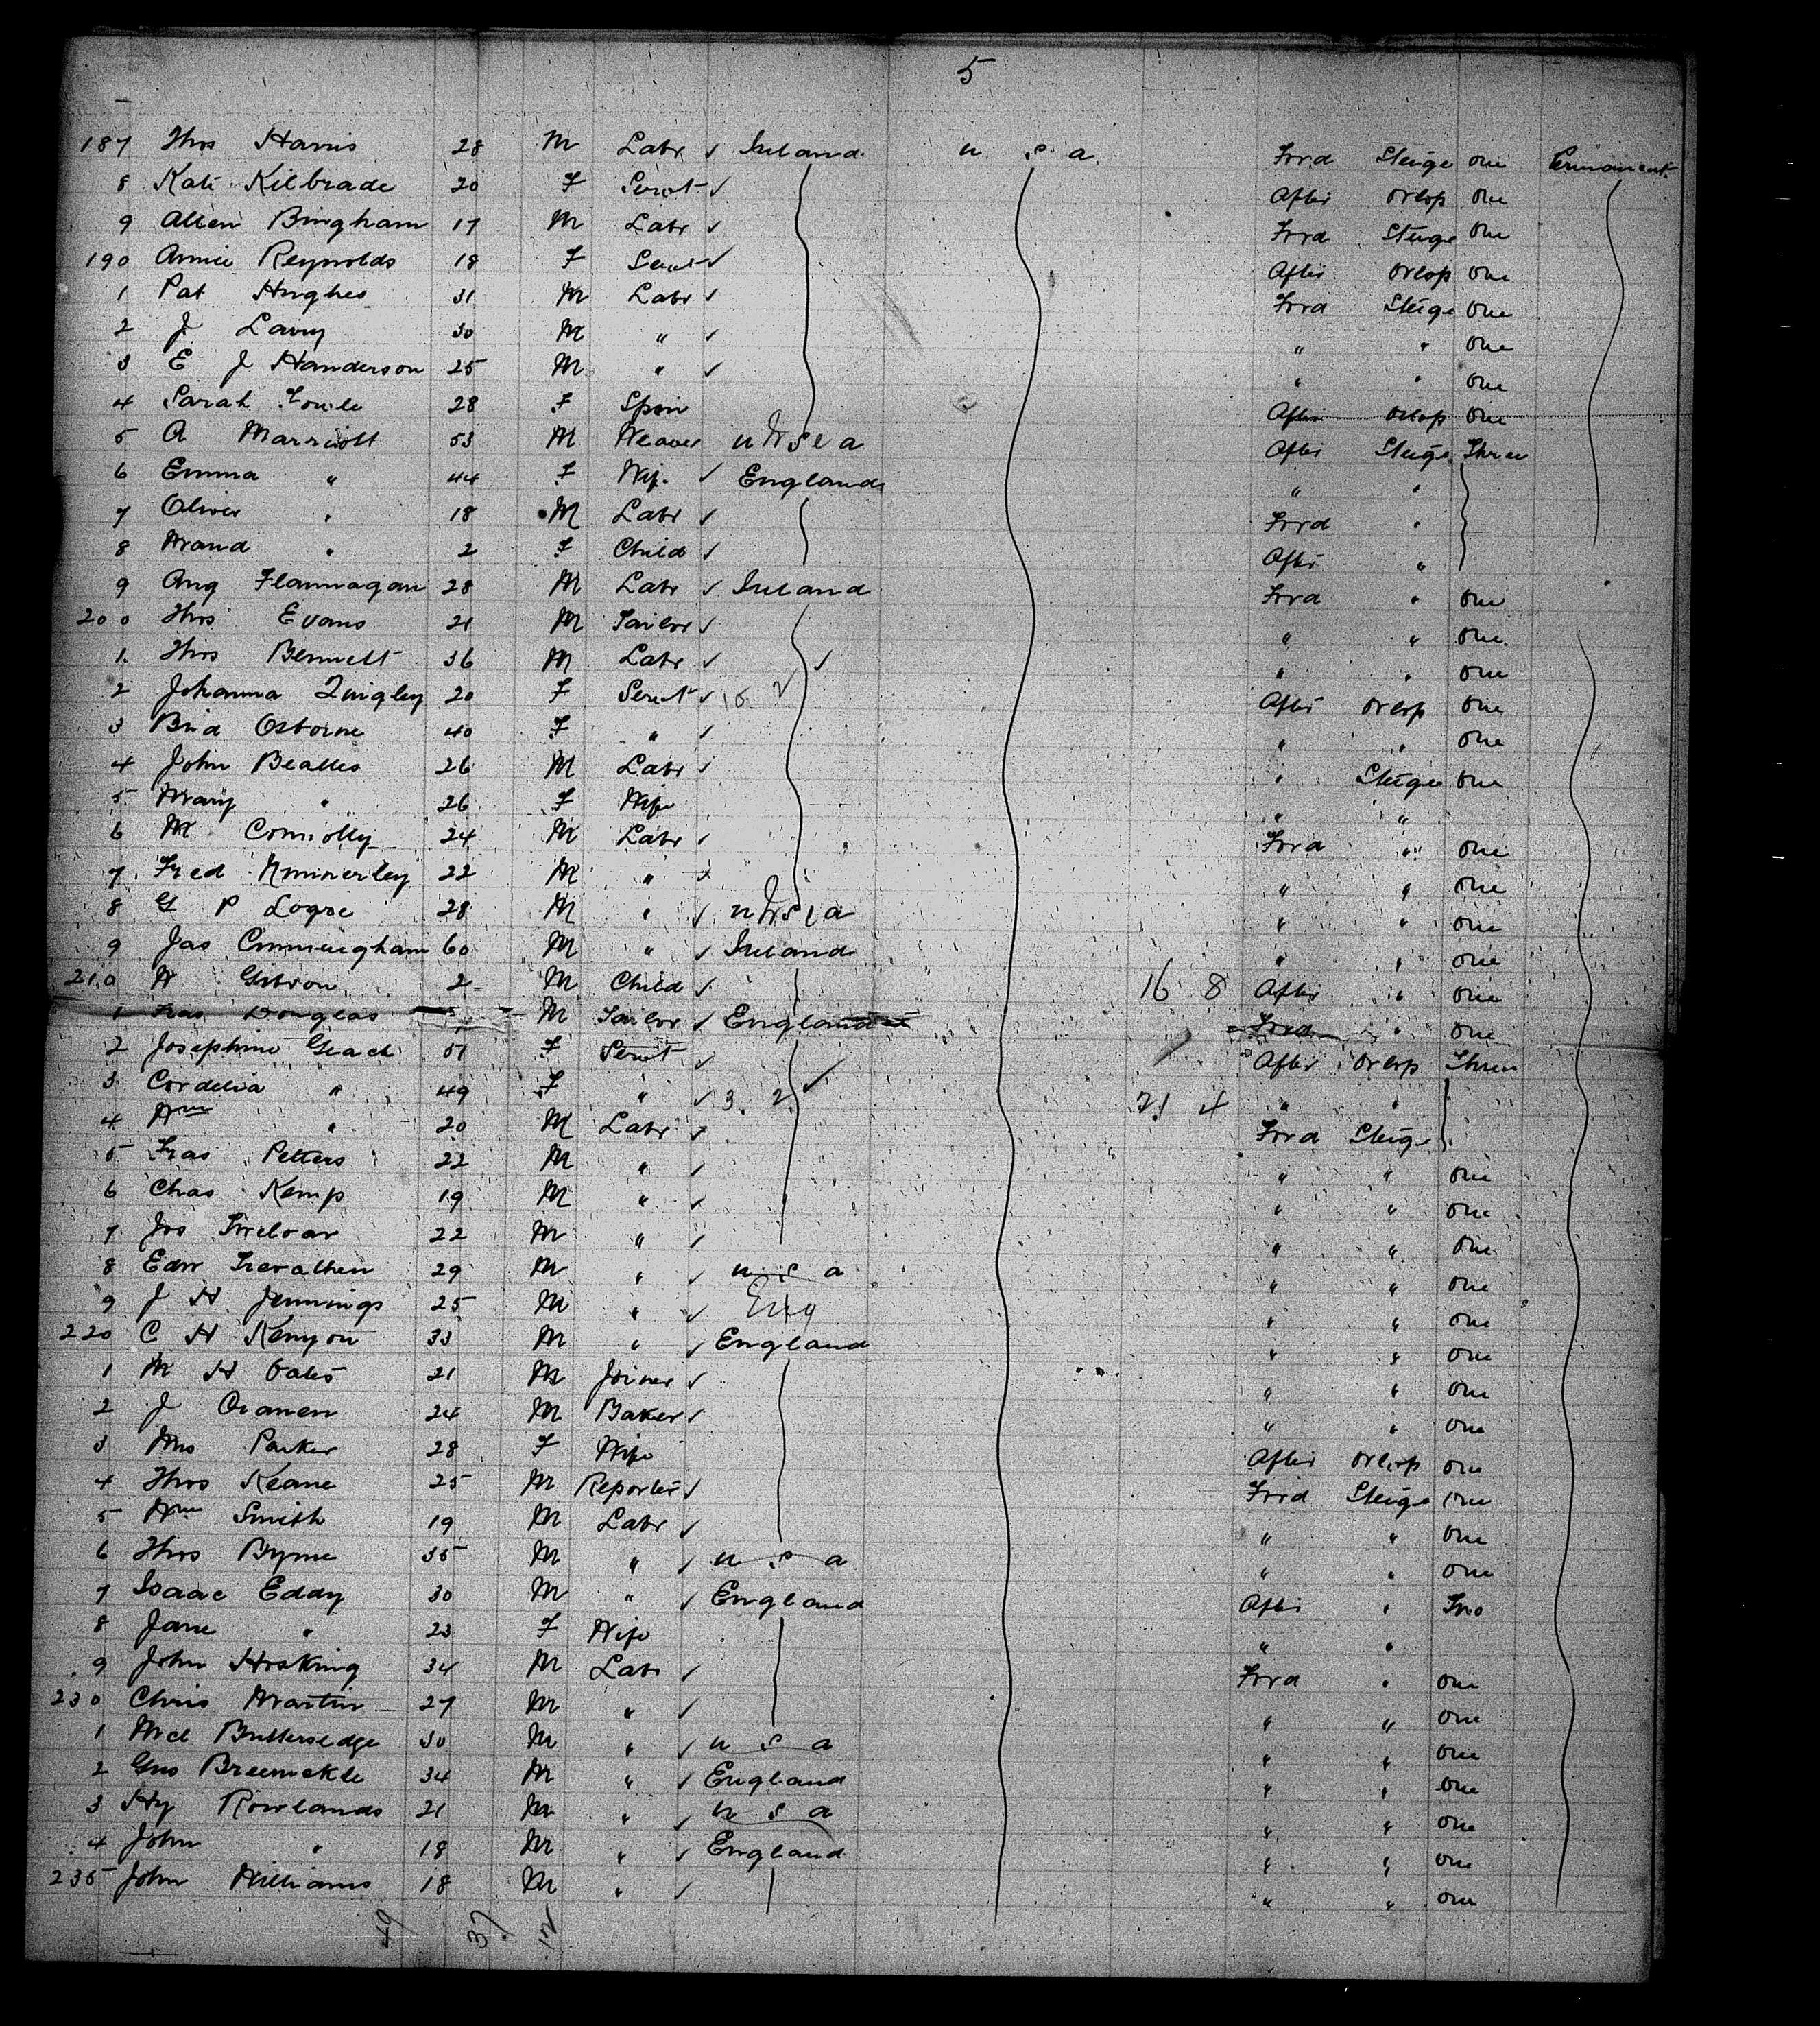 5
187 Thos Harris 28 M Labr ✓ Ireland u s a Ford Steige one Permanent
8 Kate Kilbrade 20 F Servt ✓ After Orlop one
9 Allen Bingham 17 M Labr ✓ Ford Steige one
190 Annie Reynolds 18 F Servt ✓ After Orlop one
1 Pat Hughes 31 M Labr ✓ Ford Steige one
2 J Lavry 30 M " ✓ " " one
3 E J Handerson 25 M " ✓ " " one
4 Sarah 28 F Spin After Orlop one
5 A Marriott 53 M Weaver u s a After Steige Three
6 Emma " 44 F Wife ✓ England " "
7 Oliver " 18 M Labr ✓ Ford "
8 Maud " 2 F Child ✓ After "
9 Aug Flannagan 28 M Labr ✓ Ireland Ford " one
200 Thos Evans 21 M Tailor ✓ " " one
1 Thos Bennett 36 M Labr ✓ ✓ " " one
2 Johanna Quigley 20 F Servt ✓ After Orlop one
3 Brid Osborne 40 F " ✓ " " one
4 John Beattes 26 M Labr ✓ " Steige one
5 Mary " 26 F Wife " "
6 M Connolly 24 M Labr ✓ Ford " one
7 Fred 22 M " ✓ " " one
8 G P Logse 28 M " ✓ u s a " " one
9 Jas Cunningham 60 M " ✓ Ireland " " one
210 W Gibson 2 M Child ✓ 16 8 After " one
1 Fras Douglas M Tailor ✓ England Ford " one
2 Josephine Geach 51 F Servt ✓ After Orlop Three
3 Cordelia " 49 F " ✓ 3. 2. ✓ 21 4 " "
4 Wm " 20 M Labr ✓ Ford Steige
5 Fras Petters 22 M " ✓ " " one
6 Chas Kemp 19 M " ✓ " " one
7 Jos Treloar 22 M " ✓ " " one
8 Edw Trevathen 29 M " ✓ u s a " " one
9 J H Jennings 25 M " ✓ Eng " " one
220 C H Kenyon 33 M " ✓ England " " one
1 M H Oates 21 M Joiner ✓ " " one
2 J Cranen 24 M Baker ✓ " " one
3 Mrs Parker 28 F Wife After Orlop one
4 Thos Keane 25 M Reporter ✓ Ford Steige one
5 Wm Smith 19 M Labr ✓ " " one
6 Thos Byrne 35 M " ✓ u s a " " one
7 Isaac Eddy 30 M " ✓ England After " Two
8 Jane " 23 F Wife " "
9 John Hosking 34 M Labr ✓ Ford " one
230 Chris Martin 27 M " ✓ " " one
1 Butterledge 30 M " ✓ u s a " " one
2 Gus 34 M " ✓ England " " one
3 Hy Rowlands 21 M " ✓ u s a " " one
4 John " 18 M " ✓ England " " one
235 John Williams 18 M " ✓ " " one
49 37 12